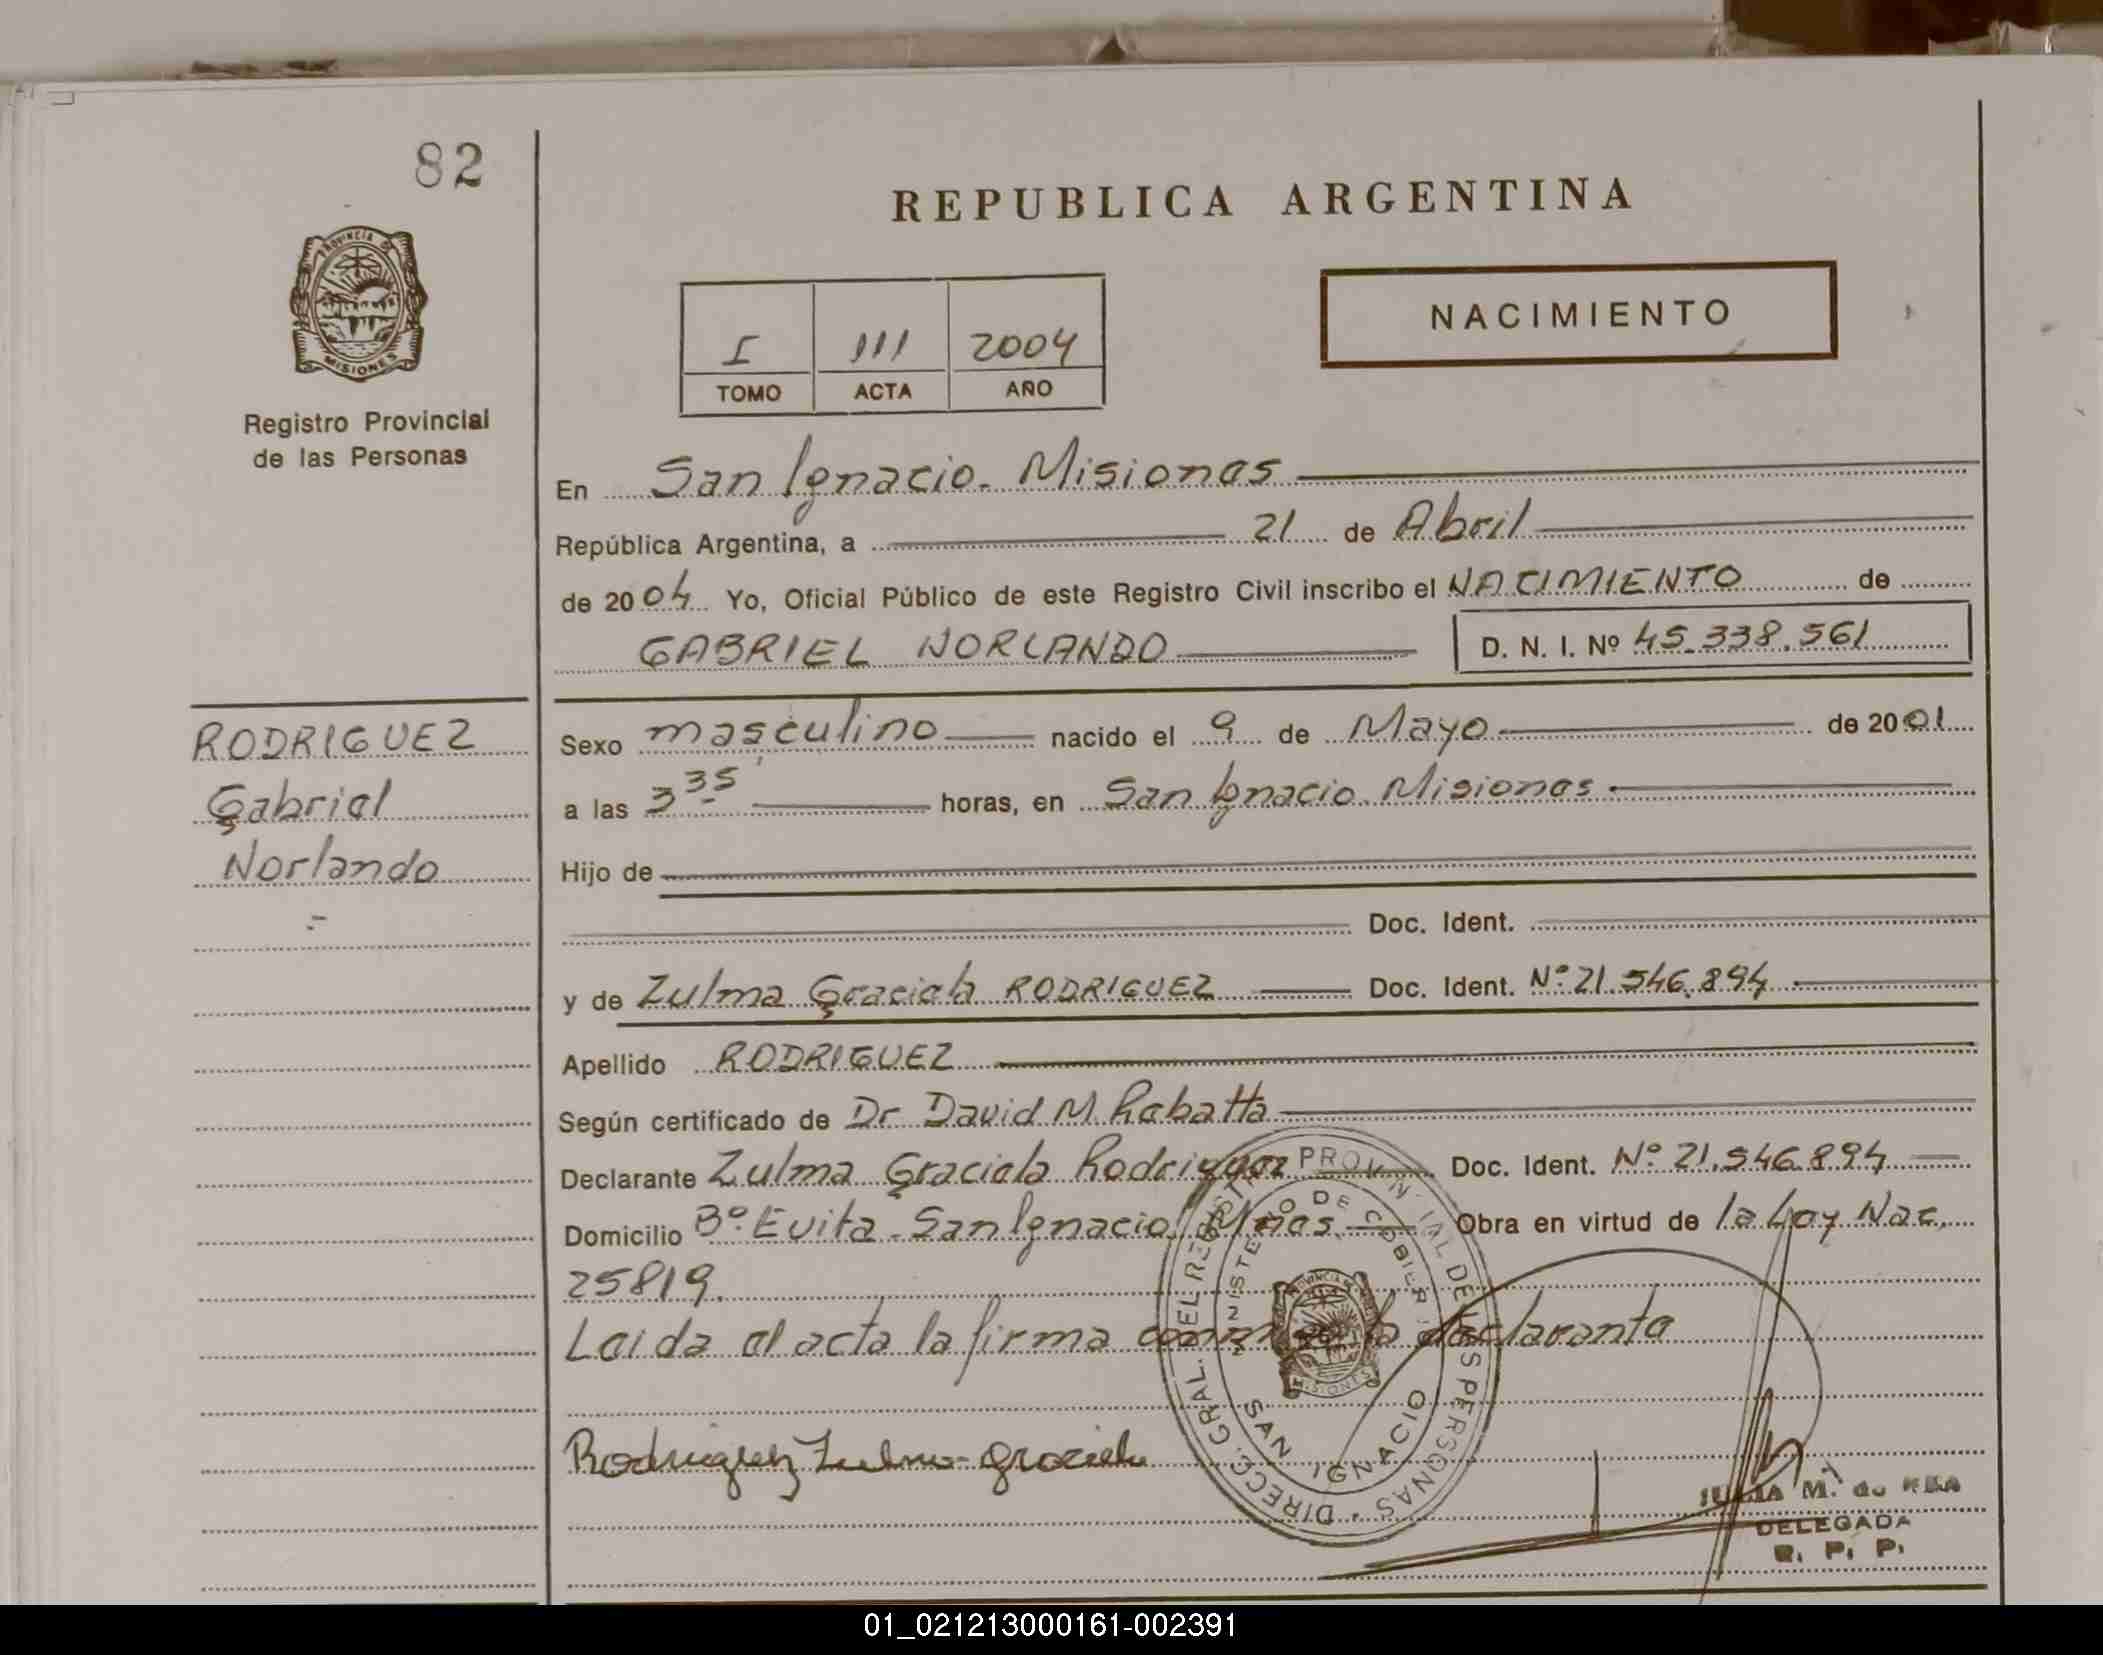 82
REPUBLICA ARGENTINA
NACIMIENTO
I 111 2004
TOMO ACTA AÑO
PROVINCIA DE
MISIONES
Registro Provincial
de las Personas
En San Ignacio. Misiones
República Argentina, a 21 de Abril
de 2004 Yo, Oficial Público de este Registro Civil inscribo el NACIMIENTO de
GABRIEL NORLANDO D. N. I. Nº 45.338.561
RODRIGUEZ
Gabriel
Norlando
Sexo masculino nacido el 9 de Mayo de 2001
a las 3 35 horas, en San Ignacio. Misiones
Hijo de
Doc. Ident.
y de Zulma Graciela RODRIGUEZ Doc. Ident. Nº 21.546.894
Apellido RODRIGUEZ
Según certificado de Dr David M. Rabatta
Declarante Zulma Graciela Rodriguez Doc. Ident. Nº 21.546.894
Domicilio Bº Evita - San Ignacio Mnes. Obra en virtud de la Ley Nac.
25819.
Leida el acta la firma conmigo la declarante
Rodriguez Zulma Graciela
DIRECC. GRAL. DEL REGISTRO PROVINCIAL DE LAS PERSONAS
MINISTERIO DE GOBIERNO
PROVINCIA DE
MISIONES
SAN IGNACIO
M. de
DELEGADA
R. P. P.
01_021213000161-002391